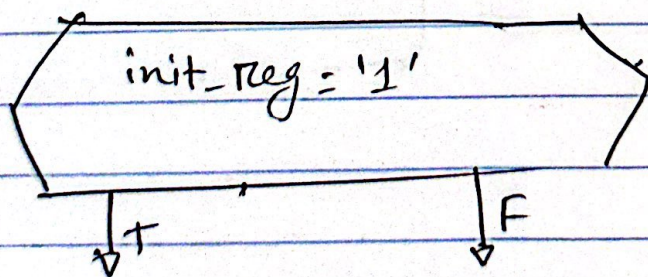 init_reg = '1'
T
F